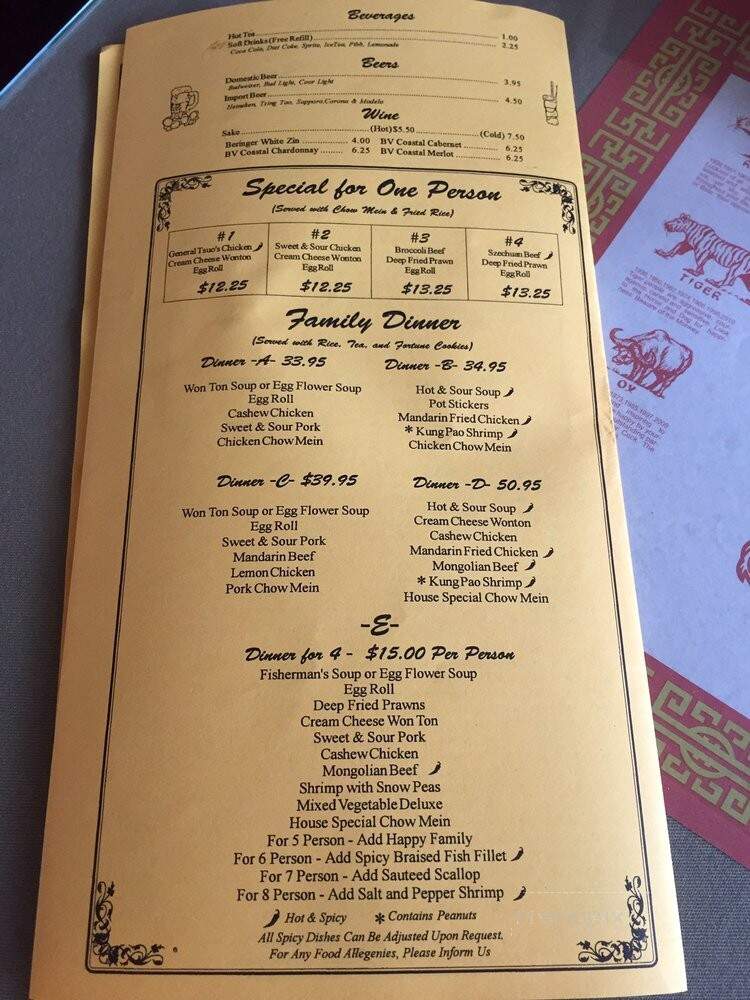 Beverages
Hot Tea 1.00
Soft Drinks (Free Refill) 2.25
Coca Cola, Diet Coke, Sprite, IceTea, Pibb, Lemonade
Beers
Domestic Beer 3.95
Budweiser, Bud Light, Coor Light
Import Beer 4.50
Heineken, Tsing Tao, Sapporo, Corona & Modelo
Wine
Sake (Hot) $5.50 (Cold) 7.50
Beringer White Zin 4.00 BV Coastal Cabernet 6.25
BV Coastal Chardonnay 6.25 BV Coastal Merlot 6.25
Special for One Person
(Served with Chow Mein & Fried Rice)
#1
General Tsuo's Chicken
Cream Cheese Wonton
Egg Roll
$12.25
#2
Sweet & Sour Chicken
Cream Cheese Wonton
Egg Roll
$12.25
#3
Broccoli Beef
Deep Fried Prawn
Egg Roll
$13.25
#4
Szechuan Beef
Deep Fried Prawn
Egg Roll
$13.25
Family Dinner
(Served with Rice, Tea, and Fortune Cookies)
Dinner -A- 33.95
Won Ton Soup or Egg Flower Soup
Egg Roll
Cashew Chicken
Sweet & Sour Pork
Chicken Chow Mein
Dinner -B- 34.95
Hot & Sour Soup
Pot Stickers
Mandarin Fried Chicken
* Kung Pao Shrimp
Chicken Chow Mein
Dinner -C- $39.95
Won Ton Soup or Egg Flower Soup
Egg Roll
Sweet & Sour Pork
Mandarin Beef
Lemon Chicken
Pork Chow Mein
Dinner -D- 50.95
Hot & Sour Soup
Cream Cheese Wonton
Cashew Chicken
Mandarin Fried Chicken
Mongolian Beef
* Kung Pao Shrimp
House Special Chow Mein
-E-
Dinner for 4 - $15.00 Per Person
Fisherman's Soup or Egg Flower Soup
Egg Roll
Deep Fried Prawns
Cream Cheese Won Ton
Sweet & Sour Pork
Cashew Chicken
Mongolian Beef
Shrimp with Snow Peas
Mixed Vegetable Deluxe
House Special Chow Mein
For 5 Person - Add Happy Family
For 6 Person - Add Spicy Braised Fish Fillet
For 7 Person - Add Sauteed Scallop
For 8 Person - Add Salt and Pepper Shrimp
Hot & Spicy * Contains Peanuts
All Spicy Dishes Can Be Adjusted Upon Request.
For Any Food Allegenies, Please Inform Us
TIGER
OX